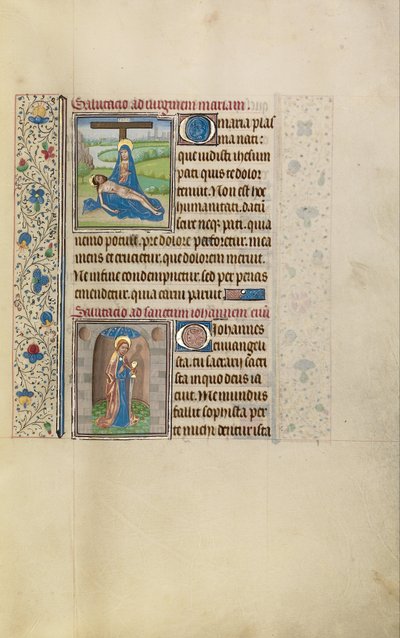 Salutacio ad virginem mariam
O maria plas
ma nati:
que vidisti ihesum
pati quis te dolor
tenuit. Non est hoc
humanitati, datū
scire neqʒ pati. quia
nemo potuit. pre dolore perforetur. mea
mens et crucietur. que dolorem meruit.
Ne in fine condempnetur. sed per penas
emendetur. quia carni paruit.
Salutacio ad sanctum iohannem euā
O Iohannes
euuangeli
sta. tu sacrarii sacri
sta in quo deus ia
cuit. Me mundus
fallit sophista per
te michi detur ista